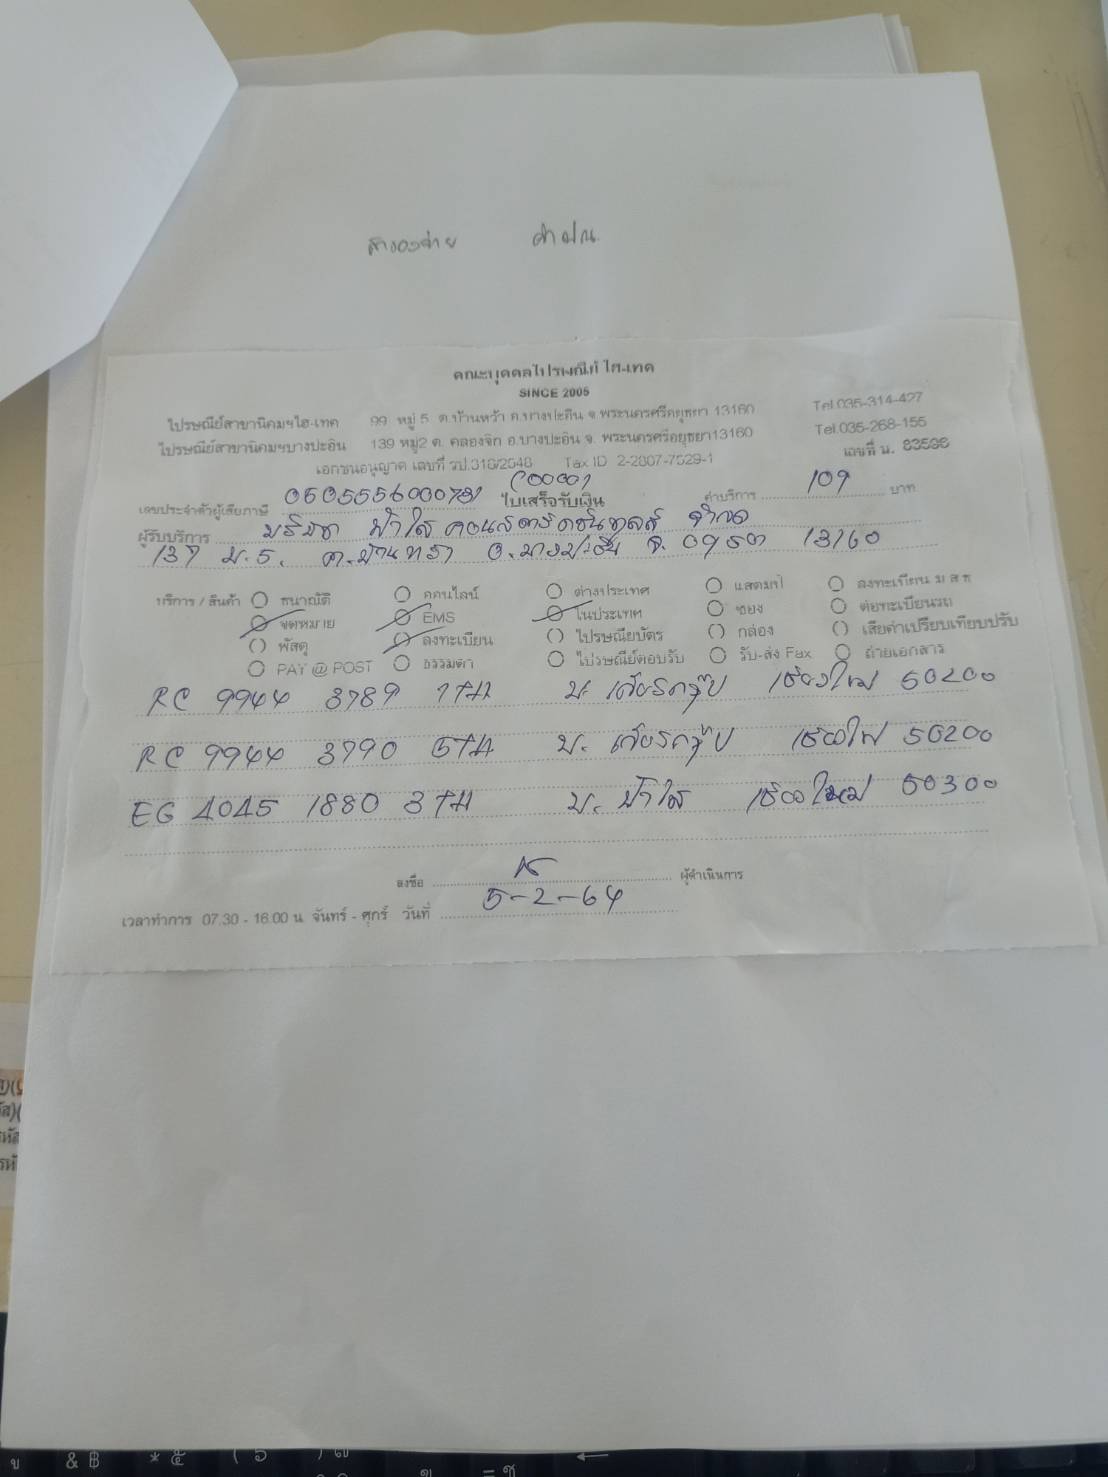 สำรองจ่าย ค่า ปณ.
คณะบุคคลไปรษณีย์ ไฮ-เทค
SINCE 2005
ไปรษณีย์สาขานิคมฯไฮ-เทค 99 หมู่ 5 ต.บ้านหว้า อ.บางปะอิน จ.พระนครศรีอยุธยา 13160 Tel.035-314-427
ไปรษณีย์สาขานิคมฯบางปะอิน 139 หมู่2 ต. คลองจิก อ.บางปะอิน จ. พระนครศรีอยุธยา13160 Tel.035-268-155
เอกชนอนุญาต เลขที่ รป.316/2548 Tax ID 2-2807-7529-1 เลขที่ น. 83598
เลขประจำตัวผู้เสียภาษี (00001) ใบเสร็จรับเงิน ค่าบริการ 109 บาท
ผู้รับบริการ บริษัท ฟ้าใส คอนสตรัคชั่น จำกัด
137 ม.5. ต.บ้าน อ.บางปะอิน จ. อยุธยา 13160
บริการ / สินค้า ธนาณัติ ออนไลน์ ต่างประเทศ แสตมป์ ลงทะเบียน ม ส ธ
จดหมาย EMS ในประเทศ ซอง ต่อทะเบียนรถ
พัสดุ ลงทะเบียน ไปรษณียบัตร กล่อง เสียค่าเปรียบเทียบปรับ
PAY @ POST ธรรมดา ไปรษณีย์ตอบรับ รับ-ส่ง Fax ถ่ายเอกสาร
RC 9944 3789 7TH บ. เชียงใหม่ 50200
RC 9944 3790 5TH บ. เชียงใหม่ 50200
EG 4045 1880 3TH บ. ฟ้าใส เชียงใหม่ 50300
ลงชื่อ ผู้ดำเนินการ
เวลาทำการ 07.30 - 16.00 น. จันทร์ - ศุกร์ วันที่ 5-2-64